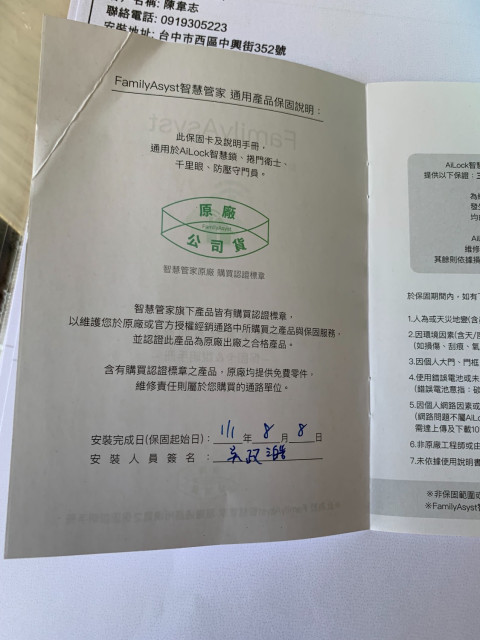 名稱: 陳韋志
聯絡電話: 0919305223
安裝地址: 台中市西區中興街352號
FamilyAsyst智慧管家 通用產品保固說明：
此保固卡及說明手冊，
通用於AiLock智慧鎖、捲門衛士、
千里眼、防壓守門員。
原廠
FamilyAsyst
公司貨
智慧管家原廠 購買認證標章
智慧管家旗下產品皆有購買認證標章，
以維護您於原廠或官方授權經銷通路中所購買之產品與保固服務，
並認證此產品為原廠出廠之合格產品。
含有購買認證標章之產品，原廠均提供免費零件，
維修責任則屬於您購買的通路單位。
安裝完成日(保固起始日)：111年8月8日
安裝人員簽名：吳政皓
AiLock智慧
提供以下保證：三
為維
發生
均由
AiL
維修
其餘則依據損
於保固期間內，如有下
1.人為或天災地變(含
2.因環境因素(含天/
(如損傷、刮痕、氧
3.因個人大門、門框
4.使用錯誤電池或未
(錯誤電池意指：碳
5.因個人網路因素或
(網路問題不屬AiLo
需達上傳及下載10
6.非原廠工程師或由
7.未依據使用說明書
※非保固範圍或
※FamilyAsyst智